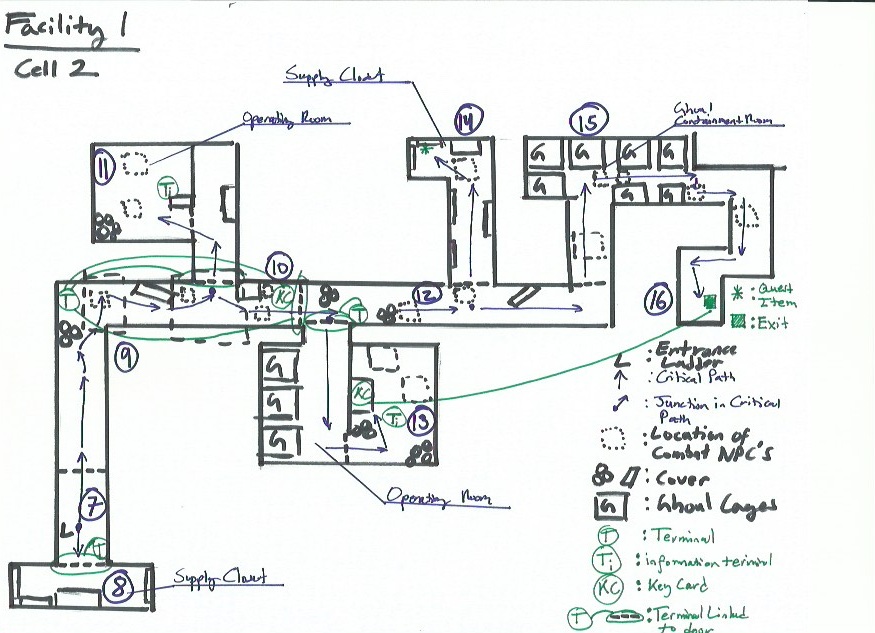 Facility 1
Cell 2
Supply Closet
Operating Room
14
Ghoul
Containment Room
15
11
G
G
G
G
Ti
G
G
G
10
T
KC
12
T
16
* : Quest
Item
: Exit
9
G
G
G
KC
Ti
13
L : Entrance
Ladder
: Critical Path
: Junction in Critical
Path
: Location of
Combat NPC's
: Cover
G : Ghoul Cages
Operating Room
7
L
T
8
Supply Closet
T : Terminal
Ti : information terminal
KC : Key Card
T : Terminal Linked
to door